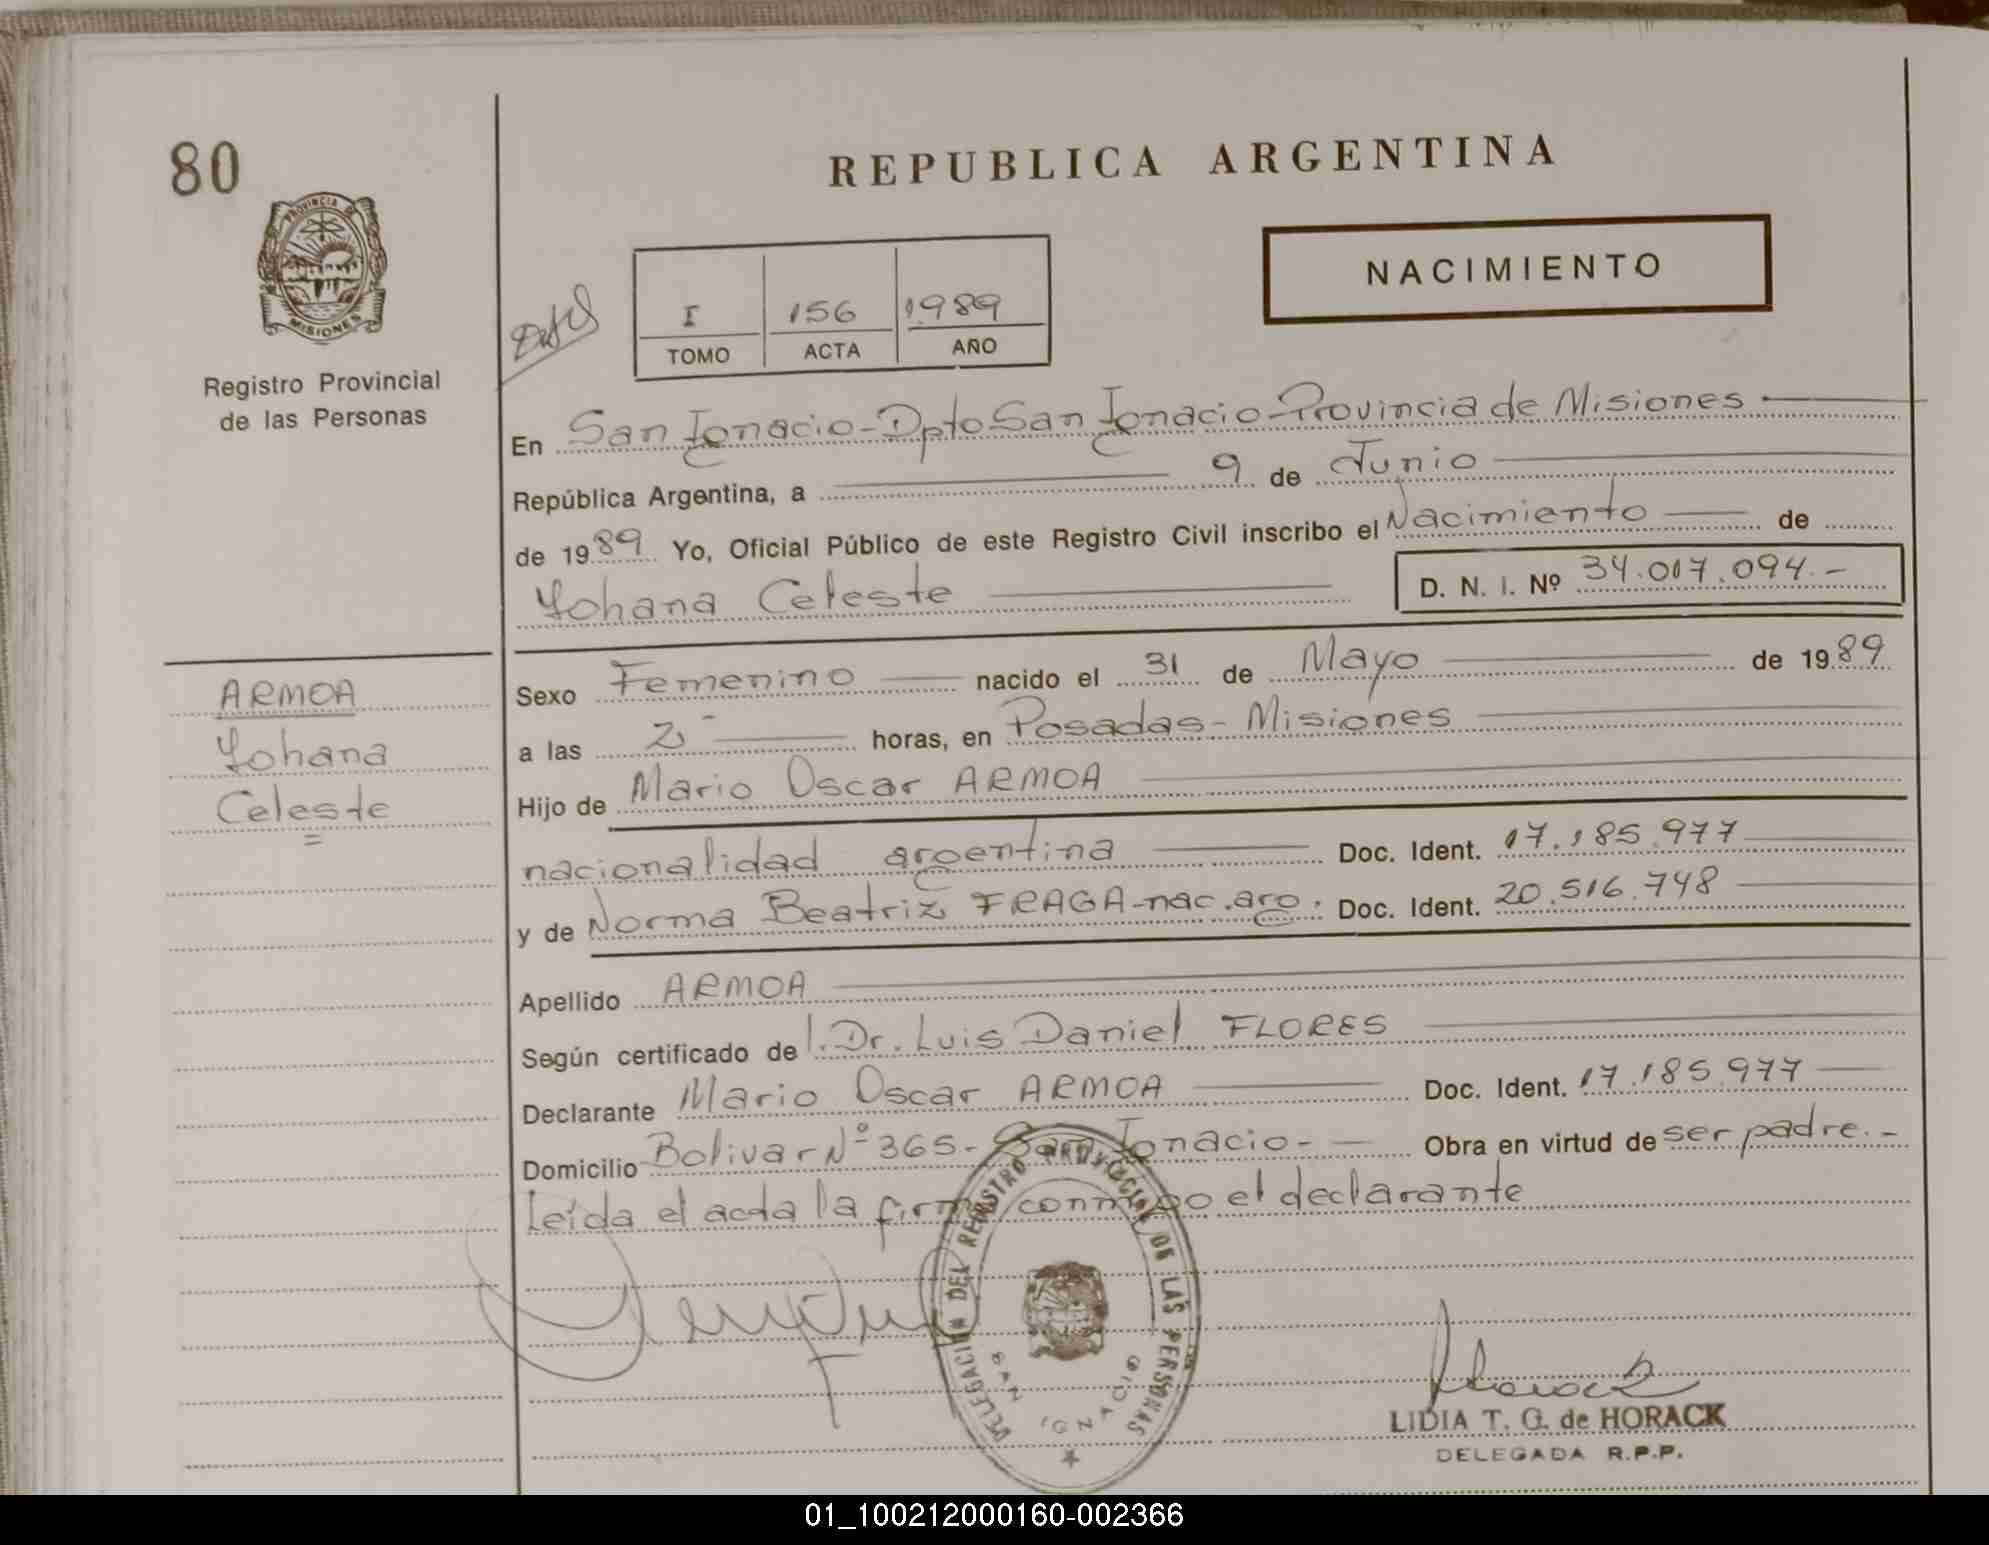 80
PROVINCIA DE
MISIONES
Registro Provincial
de las Personas
REPUBLICA ARGENTINA
NACIMIENTO
I 156 1989
TOMO ACTA AÑO
En San Ignacio-Dpto San Ignacio-Provincia de Misiones
República Argentina, a 9 de Junio
de 1989 Yo, Oficial Público de este Registro Civil inscribo el Nacimiento de
Yohana Celeste D. N. I. Nº 34.017.094.-
ARMOA
Yohana
Celeste
Sexo Femenino nacido el 31 de Mayo de 1989
a las 2 horas, en Posadas-Misiones
Hijo de Mario Oscar ARMOA
nacionalidad argentina Doc. Ident. 17.185.977
y de Norma Beatriz FRAGA-nac.arg. Doc. Ident. 20.516.748
Apellido ARMOA
Según certificado del. Dr. Luis Daniel FLORES
Declarante Mario Oscar ARMOA Doc. Ident. 17.185.977
Domicilio Bolivar Nº 365.- San Ignacio-- Obra en virtud de ser padre.-
Leída el acta la firma conmigo el declarante
DELEGACION DEL REGISTRO PROVINCIAL DE LAS PERSONAS
SAN IGNACIO
Horack
LIDIA T. G. de HORACK
DELEGADA R.P.P.
01_100212000160-002366